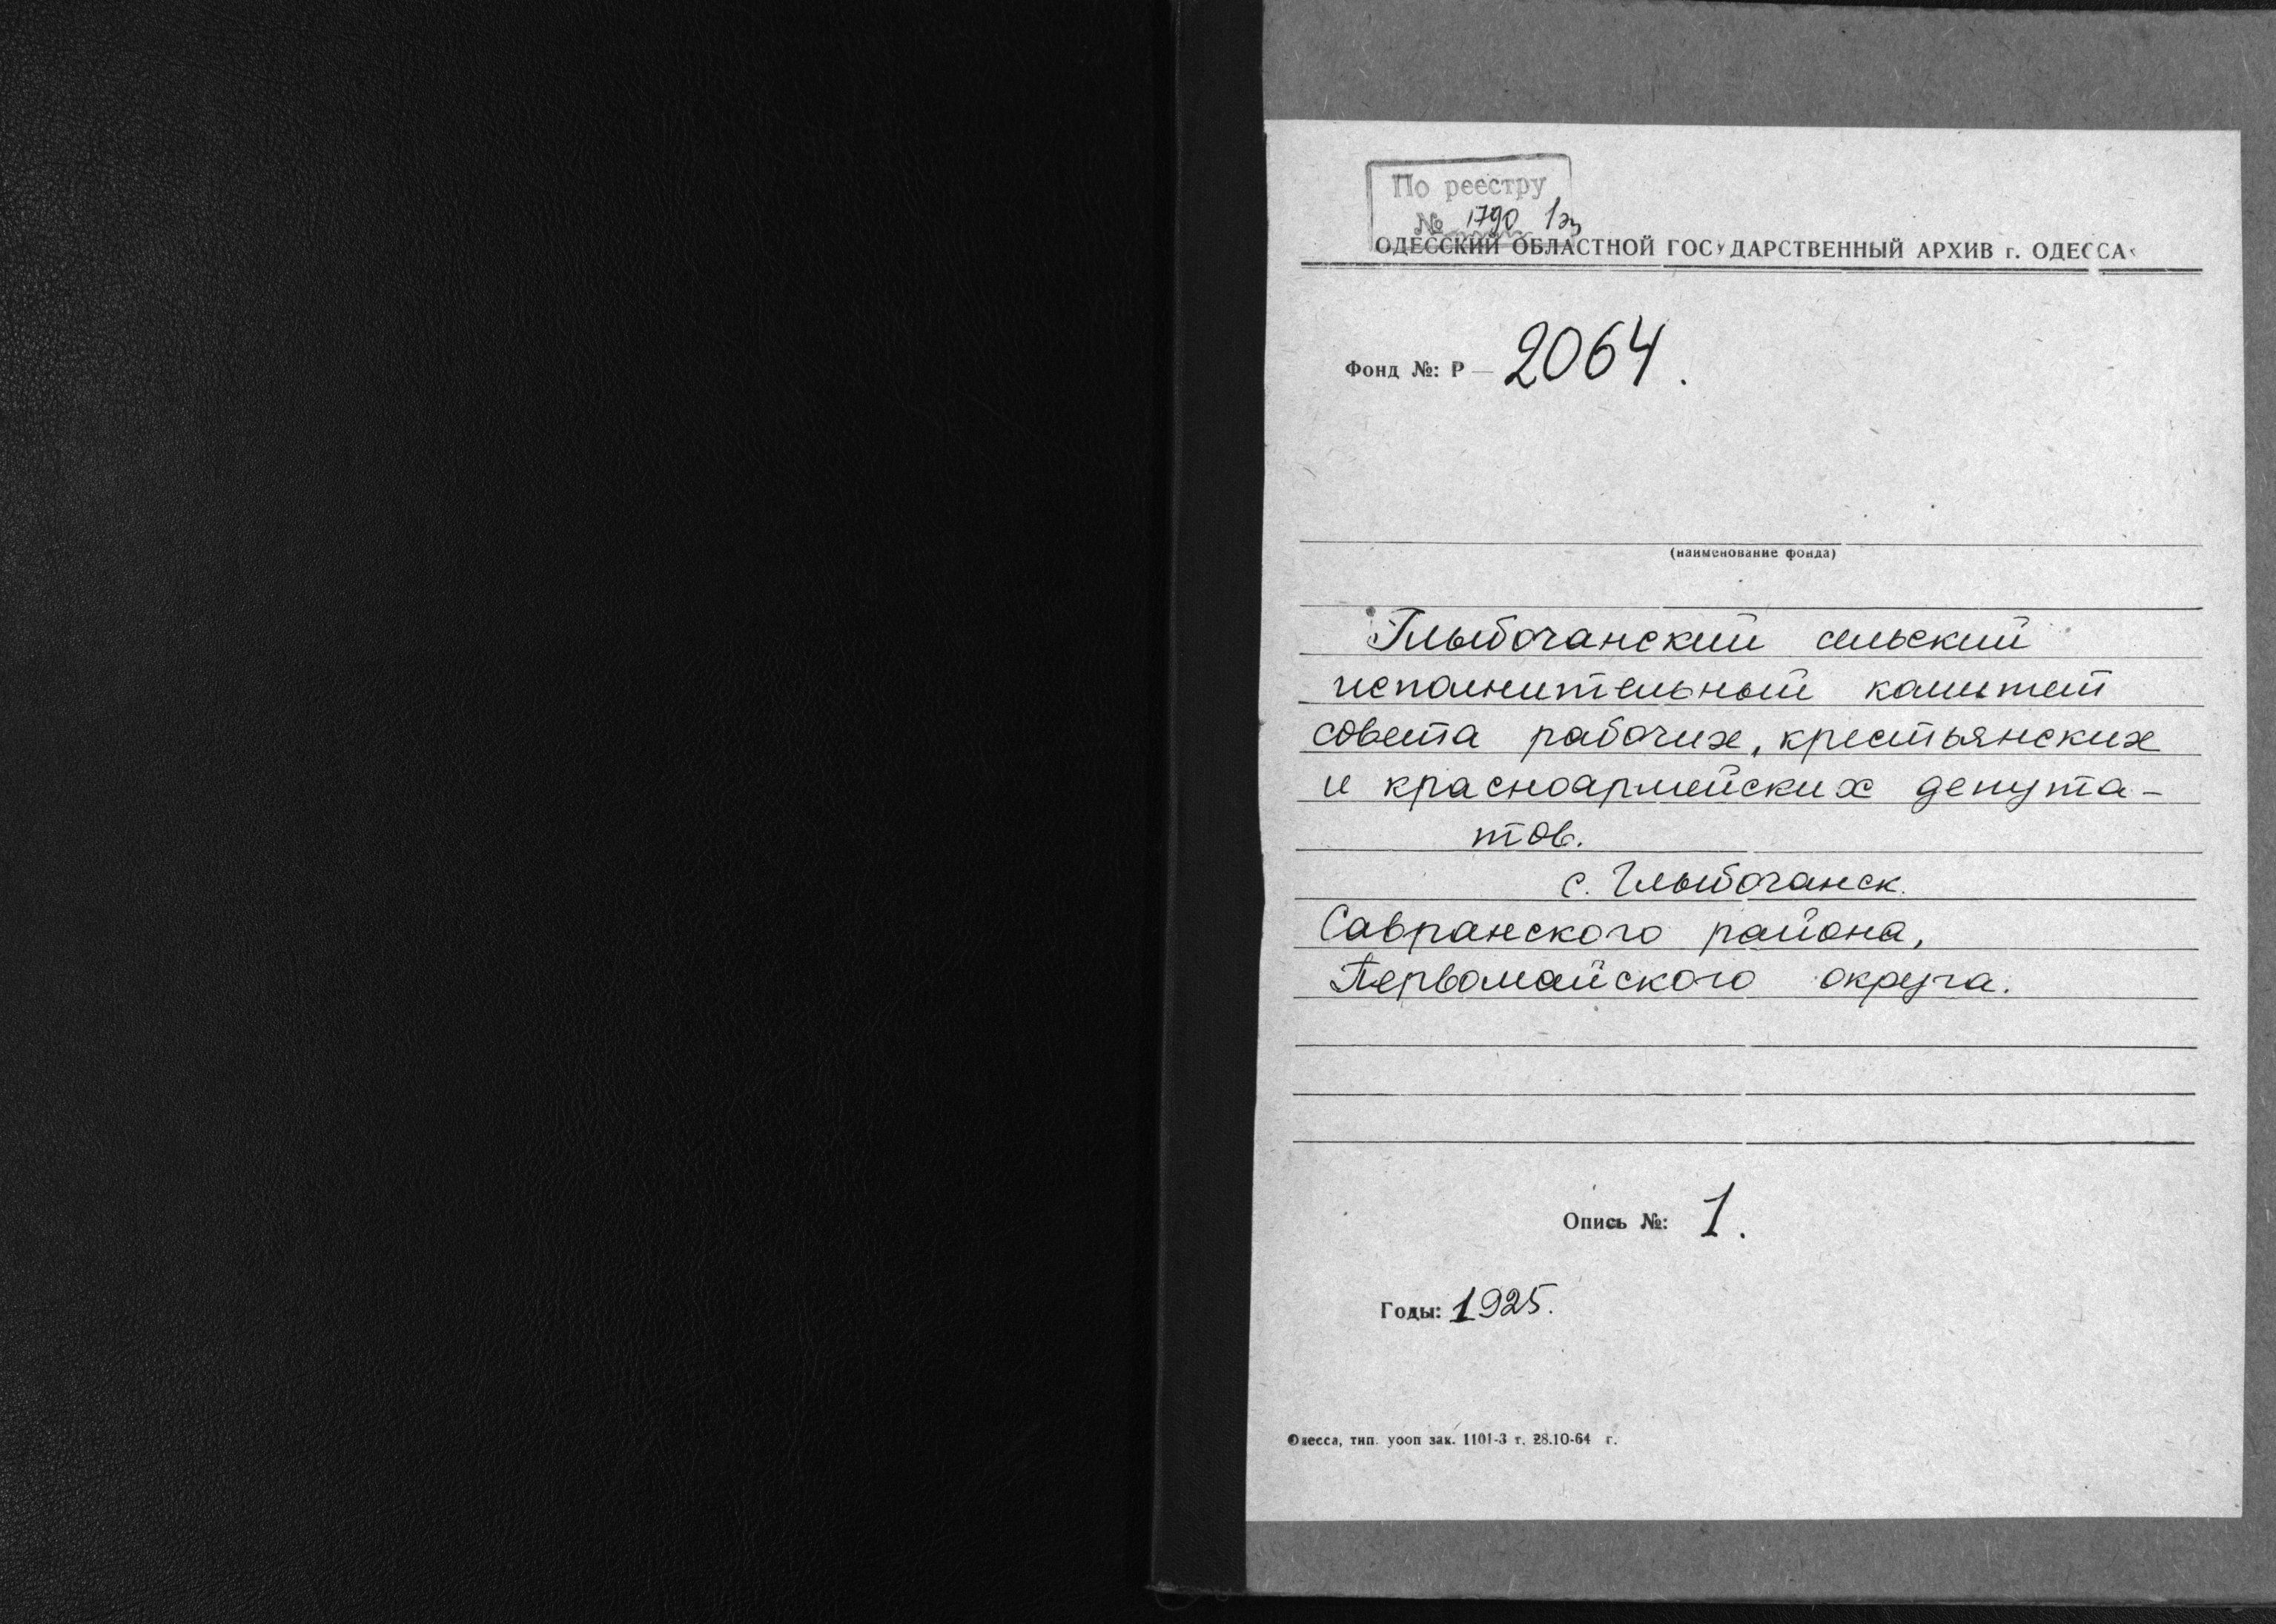 По реестру
№ 1790 1эз
ОДЕССКИЙ ОБЛАСТНОЙ ГОСУДАРСТВЕННЫЙ АРХИВ г. ОДЕССА
Фонд №: Р — 2064.
(наименование фонда)
Глыбочанский сельский
исполнительный комитет
совета рабочих, крестьянских
и красноармейских депута-
тов.
с. Глыбочанск.
Савранского района,
Первомайского округа.
Опись №: 1.
Годы: 1925.
Одесса, тип. уооп зак. 1101-3 т. 28.10-64 г.